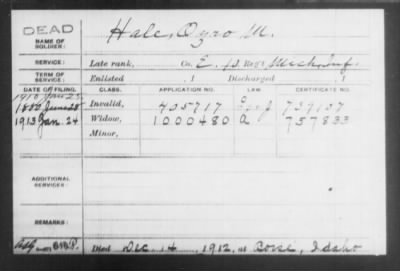 DEAD
NAME OF SOLDIER: Hale, Ozro M.
SERVICE: Late rank, Co. E, 13 Reg't Mich. Inf.
TERM OF SERVICE: Enlisted , 1 Discharged , 1
DATE OF FILING. CLASS. APPLICATION NO. LAW. CERTIFICATE NO.
1880 June 28 Invalid, 405717 737107
1913 Jan. 24 Widow, 1000480 757833
Minor,
ADDITIONAL SERVICES:
REMARKS:
Died Dec. 14, 1912, at Boise, Idaho